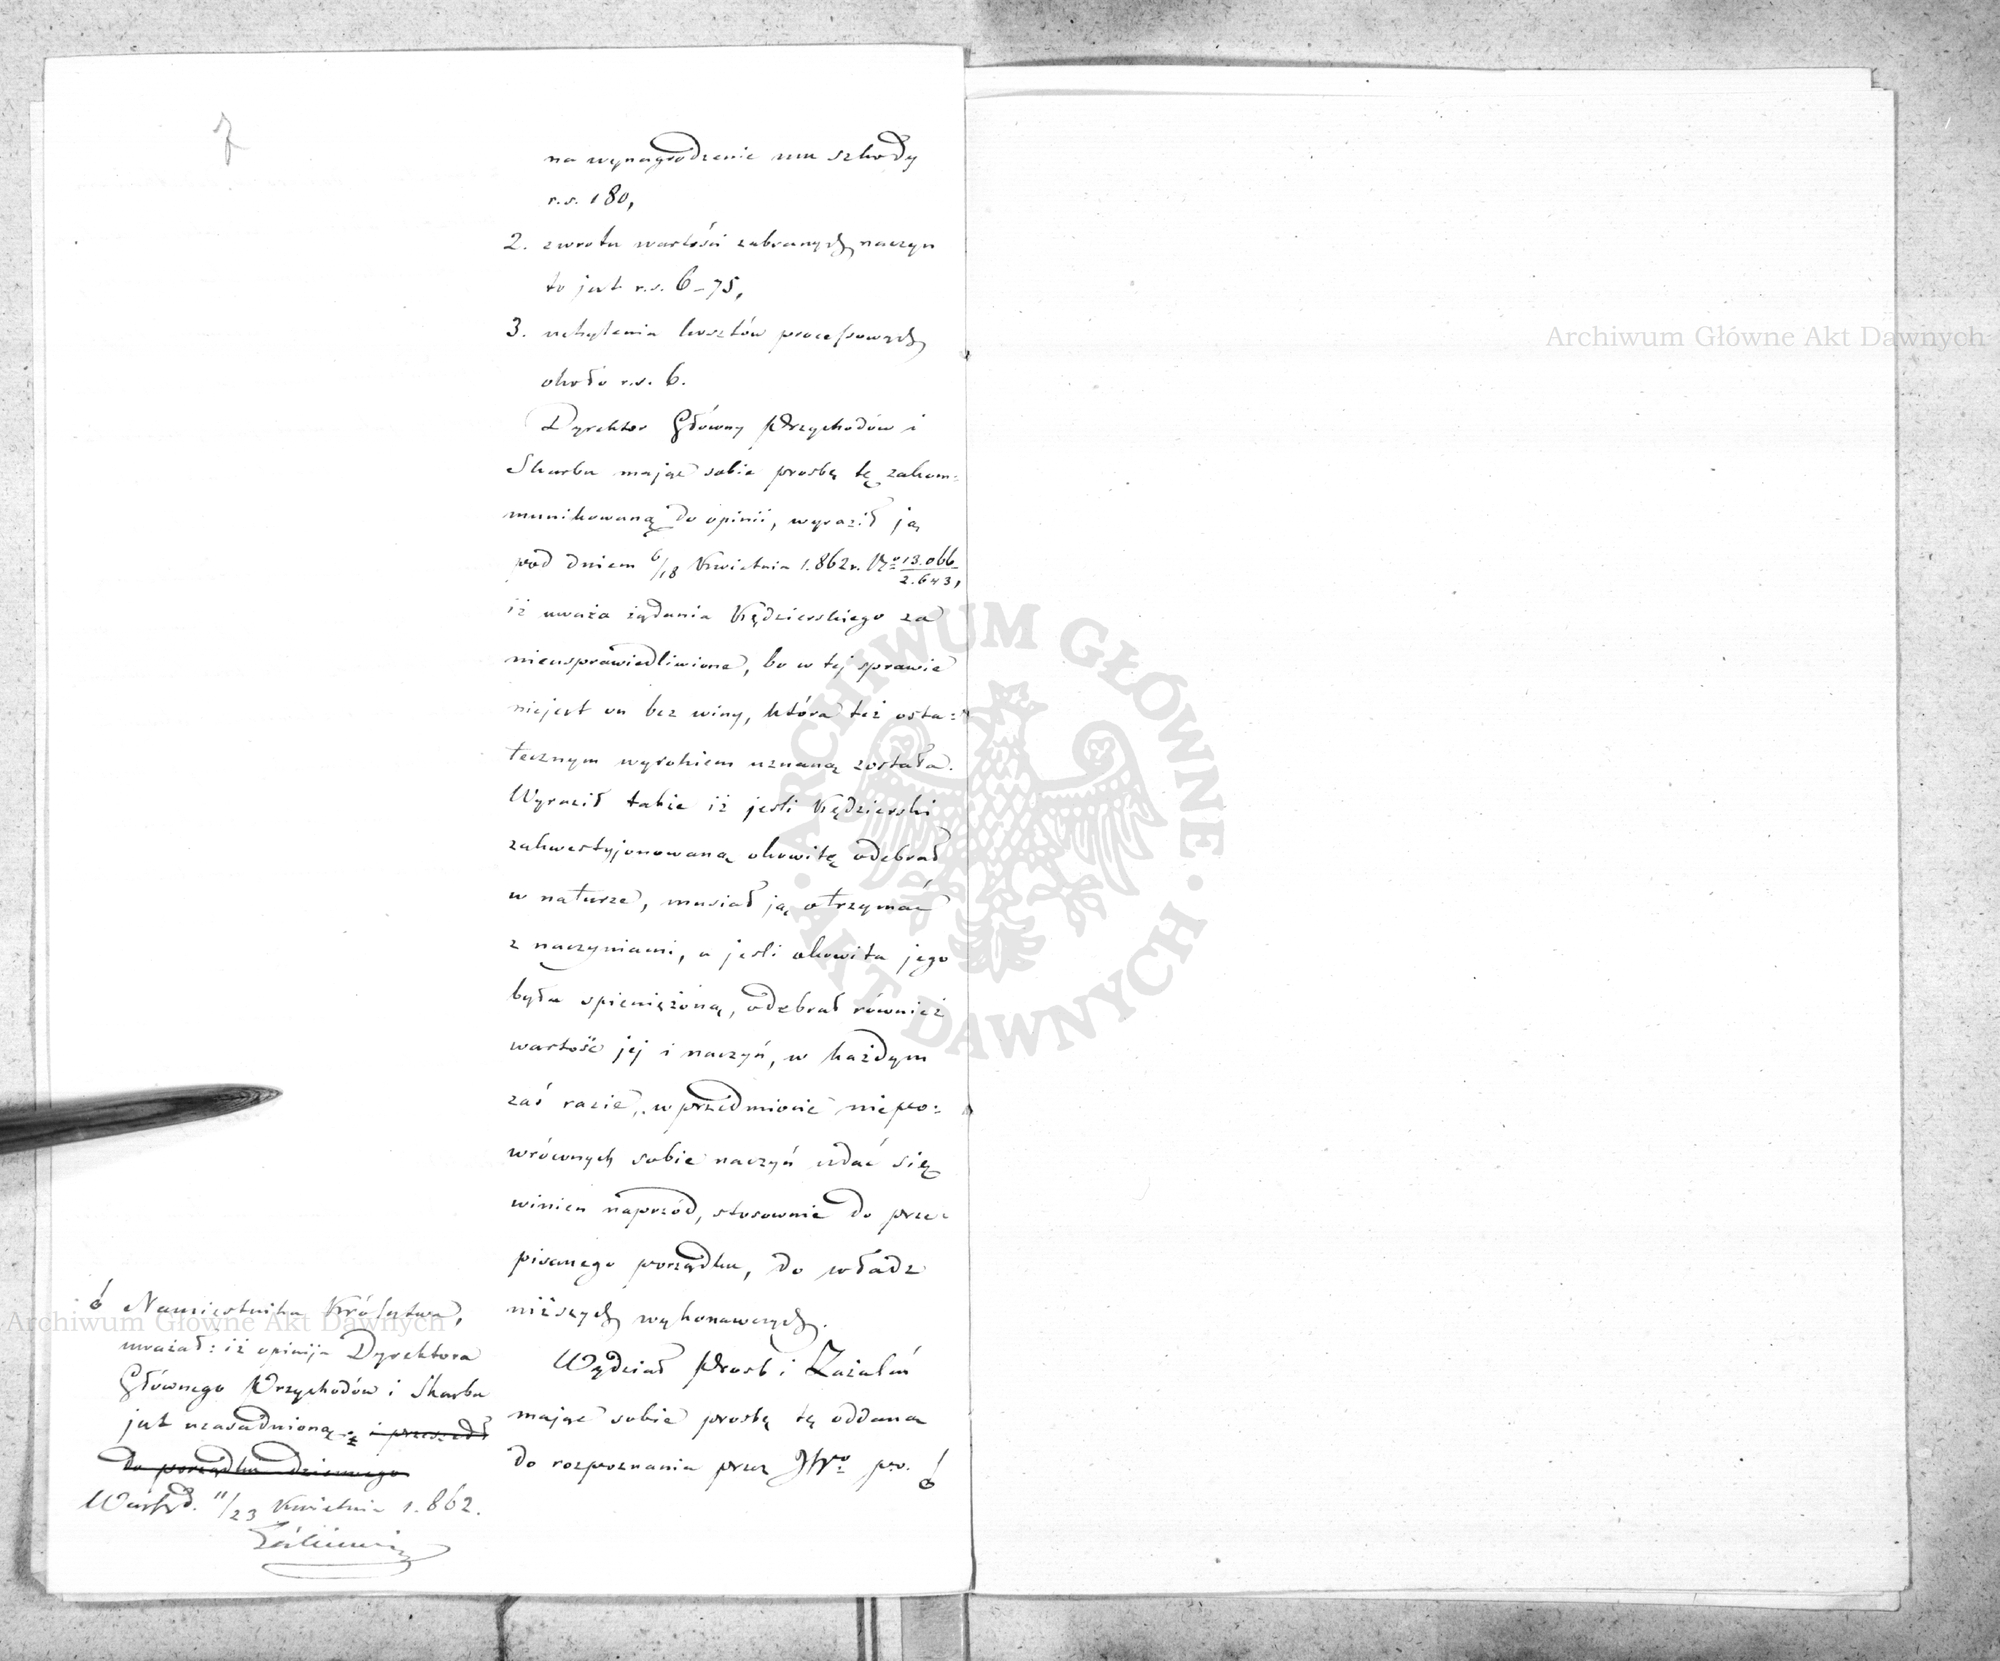 7
na wynagrodzenie mu szkody
r.s. 180,
2. zwrotu wartości zabranych naczyń
to jest r.s. 6-75,
3. uchylenia kosztów processowych
około r.s. 6.
Dyrektor Główny Przychodów i
Skarbu mając sobie prosbę tę zakom=
munikowaną do opinii, wyraził ją
pod dniem 6/18 Kwietnia 1.862 r. No 13.066/2.643,
iż uważa żądania Kędzierskiego za
nieusprawiedliwione, bo w tej sprawie
niejest on bez winy, która też osta=
tecznym wyrokiem uznaną została.
Wyraził takie iż jesli Kędzierski
zakwestyjonowaną okowitę odebrał
w naturze, musiał ją otrzymać
z naczyniami, a jesli okowita jego
była spieniężoną, odebrał również
wartość jej i naczyń, w każdym
zaś razie, w przedmiocie niepo=
wróconych sobie naczyń udać się
winien naprzód, stosownie do prze=
pisanego porządku, do władz
niższych wykonawczych.
Wydział Prosb i Zażaleń
mając sobie prosbę tę oddaną
do rozpoznania przez JWo
Namiestnika Królestwa,
uważał: iż opinija Dyrektora
Głównego Przychodów i Skarbu
jest uzasadnioną i przeszedł
do porządku dziennego
11/23 Kwietnia 1.862.
Archiwum Główne Akt Dawnych
Archiwum Główne Akt Dawnych
ARCHIWUM GŁÓWNE · AKT DAWNYCH ·